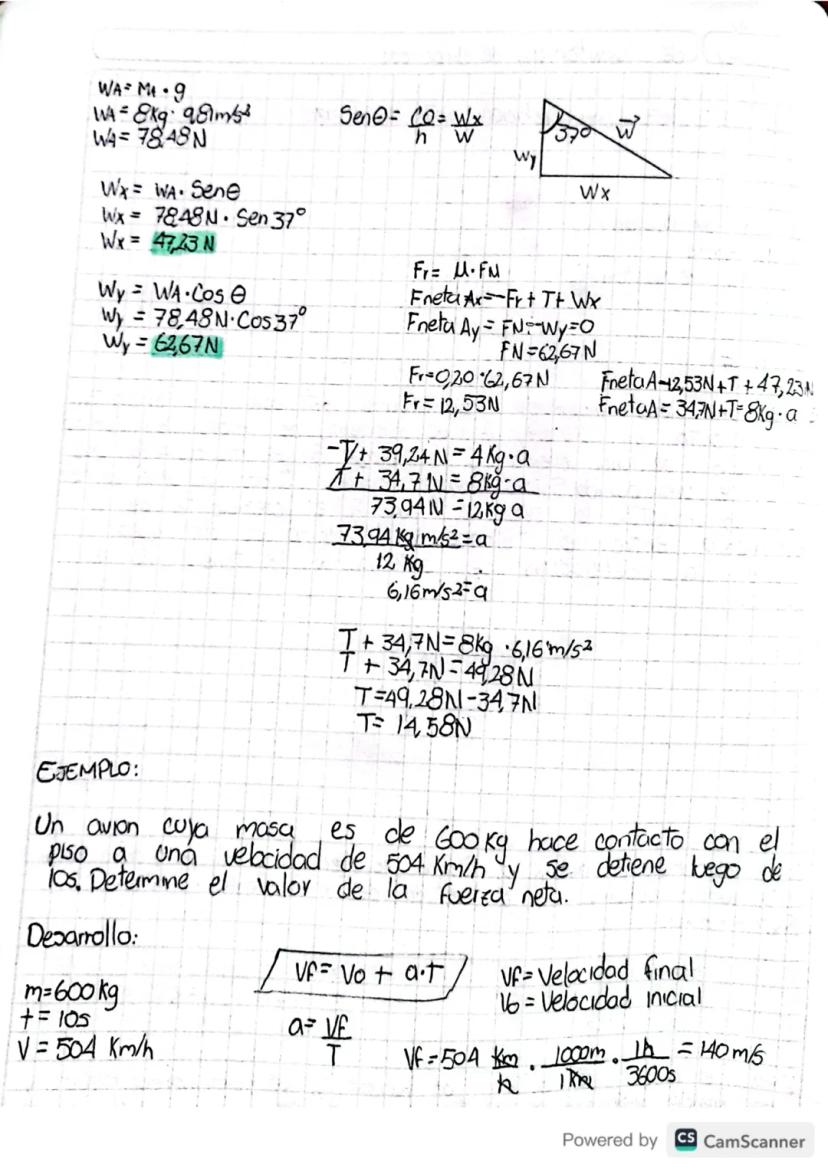 WA= MA • g
WA = 8Kg • 9,81m/s²
WA = 78,48N
Senθ = CO/h = Wx/W
37° W⃗
Wy
Wx
Wx = WA • Senθ
Wx = 78,48N • Sen 37°
Wx = 47,23 N
Wy = WA • Cos θ
Wy = 78,48N • Cos 37°
Wy = 62,67N
Fr = μ • FN
Fneta Ax = -Fr + T + Wx
Fneta Ay = FN - Wy = 0
FN = 62,67N
Fr = 0,20 • 62,67N
Fr = 12,53N
FnetaA -12,53N + T + 47,23N
FnetaA = 34,7N + T = 8Kg • a
-T + 39,24N = 4Kg • a
T + 34,7N = 8Kg • a
73,94N = 12Kg a
73,94 Kg m/s² = a
12 Kg
6,16m/s² = a
T + 34,7N = 8Kg • 6,16 m/s²
T + 34,7N = 49,28N
T = 49,28N - 34,7N
T = 14,58N
EJEMPLO:
Un avion cuya masa es de 600 Kg hace contacto con el
piso a una velocidad de 504 Km/h y se detiene luego de
10s. Determine el valor de la fuerza neta.
Desarrollo:
m = 600 kg
t = 10s
V = 504 Km/h
Vf = Vo + a•t
a = Vf/T
Vf = Velocidad final
Vo = Velocidad inicial
Vf = 504 Km/h • 1000m/1Km • 1h/3600s = 140 m/s
Powered by CS CamScanner